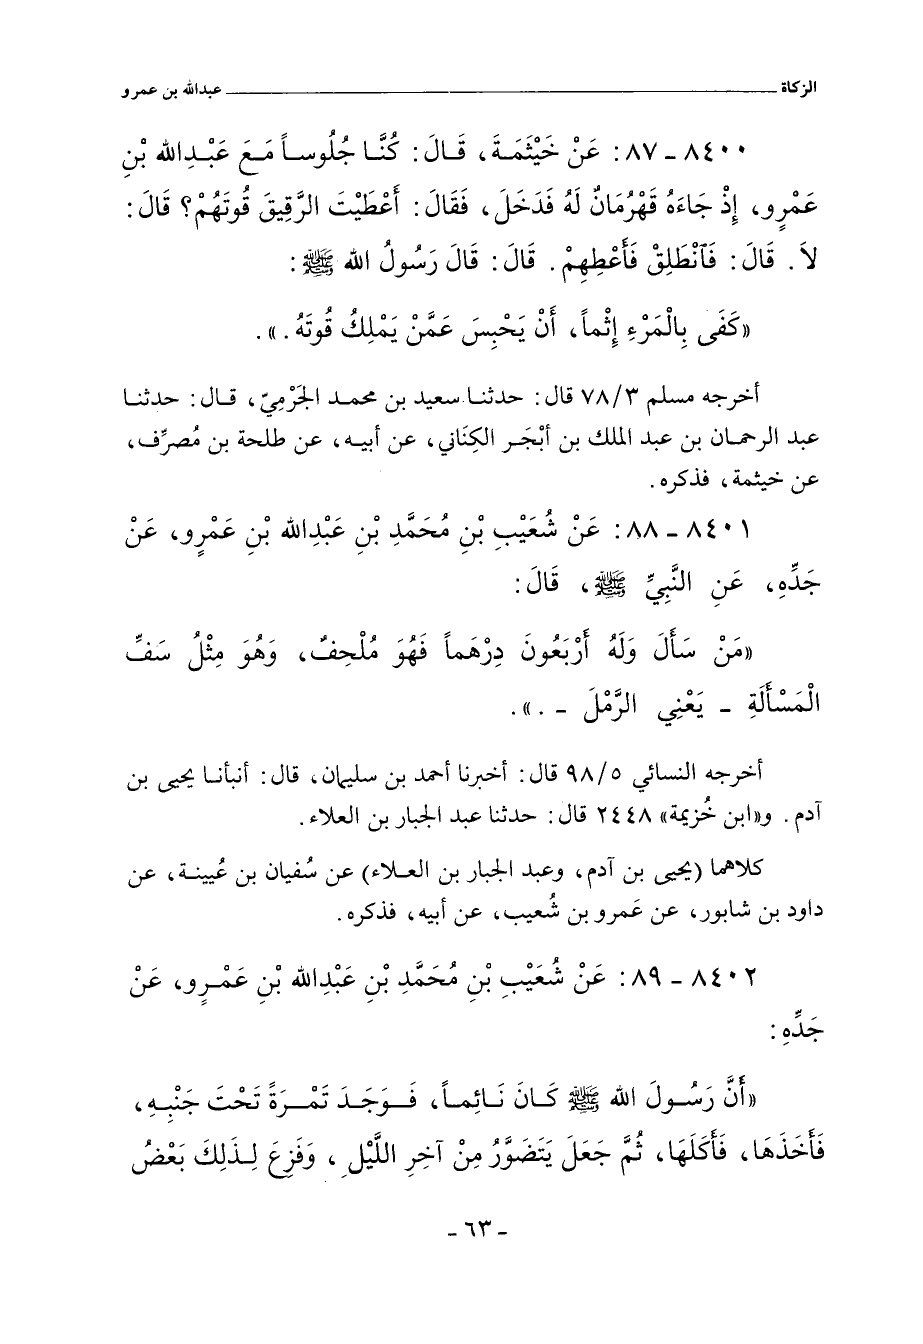 الزكاة ــــــــــــــــــــ عبدالله بن عمرو
٨٤٠٠ - ٨٧: عَنْ خَيْثَمَةَ، قَالَ: كُنَّا جُلُوساً مَعَ عَبْدِالله بْنِ
عَمْرٍو، إِذْ جَاءَهُ قَهْرُمَانٌ لَهُ فَدَخَلَ، فَقَالَ: أَعْطَيْتَ الرَّقِيقَ قُوتَهُمْ؟ قَالَ:
لاَ. قَالَ: فَآنْطَلِقْ فَأَعْطِهِمْ. قَالَ: قَالَ رَسُولُ الله ﷺ:
«كَفَى بِالْمَرْءِ إِثْماً، أَنْ يَحْبِسَ عَمَّنْ يَمْلِكُ قُوتَهُ.».
أخرجه مسلم ٧٨/٣ قال: حدثنا سعيد بن محمد الجَرْمِيّ، قال: حدثنا
عبد الرحمان بن عبد الملك بن أَبْجَر الكِنَاني، عن أبيه، عن طلحة بن مُصرِّف،
عن خيثمة، فذكره.
٨٤٠١ - ٨٨: عَنْ شُعَيْبِ بْنِ مُحَمَّدِ بْنِ عَبْدِالله بْنِ عَمْرٍو، عَنْ
جَدِّهِ، عَنِ النَّبِيِّ ﷺ، قَالَ:
«مَنْ سَأَلَ وَلَهُ أَرْبَعُونَ دِرْهَماً فَهُوَ مُلْحِفٌ، وَهُوَ مِثْلُ سَفِّ
الْمَسْأَلَةِ - يَعْنِي الرَّمْلَ - .».
أخرجه النسائي ٩٨/٥ قال: أخبرنا أحمد بن سليمان، قال: أنبأنا يحيى بن
آدم. و«ابن خُزيمة» ٢٤٤٨ قال: حدثنا عبد الجبار بن العلاء.
كلاهما (يحيى بن آدم، وعبد الجبار بن العلاء) عن سُفيان بن عُيينة، عن
داود بن شابور، عن عَمرو بن شُعيب، عن أبيه، فذكره.
٨٤٠٢ - ٨٩: عَنْ شُعَيْبِ بْنِ مُحَمَّدِ بْنِ عَبْدِالله بْنِ عَمْرٍو، عَنْ
جَدِّهِ:
«أَنَّ رَسُولَ الله ﷺ كَانَ نَائِماً، فَوَجَدَ تَمْرَةً تَحْتَ جَنْبِهِ،
فَأَخَذَهَا، فَأَكَلَهَا، ثُمَّ جَعَلَ يَتَضَوَّرُ مِنْ آخِرِ اللَّيْلِ، وَفَزِعَ لِذَلِكَ بَعْضُ
- ٦٣ -